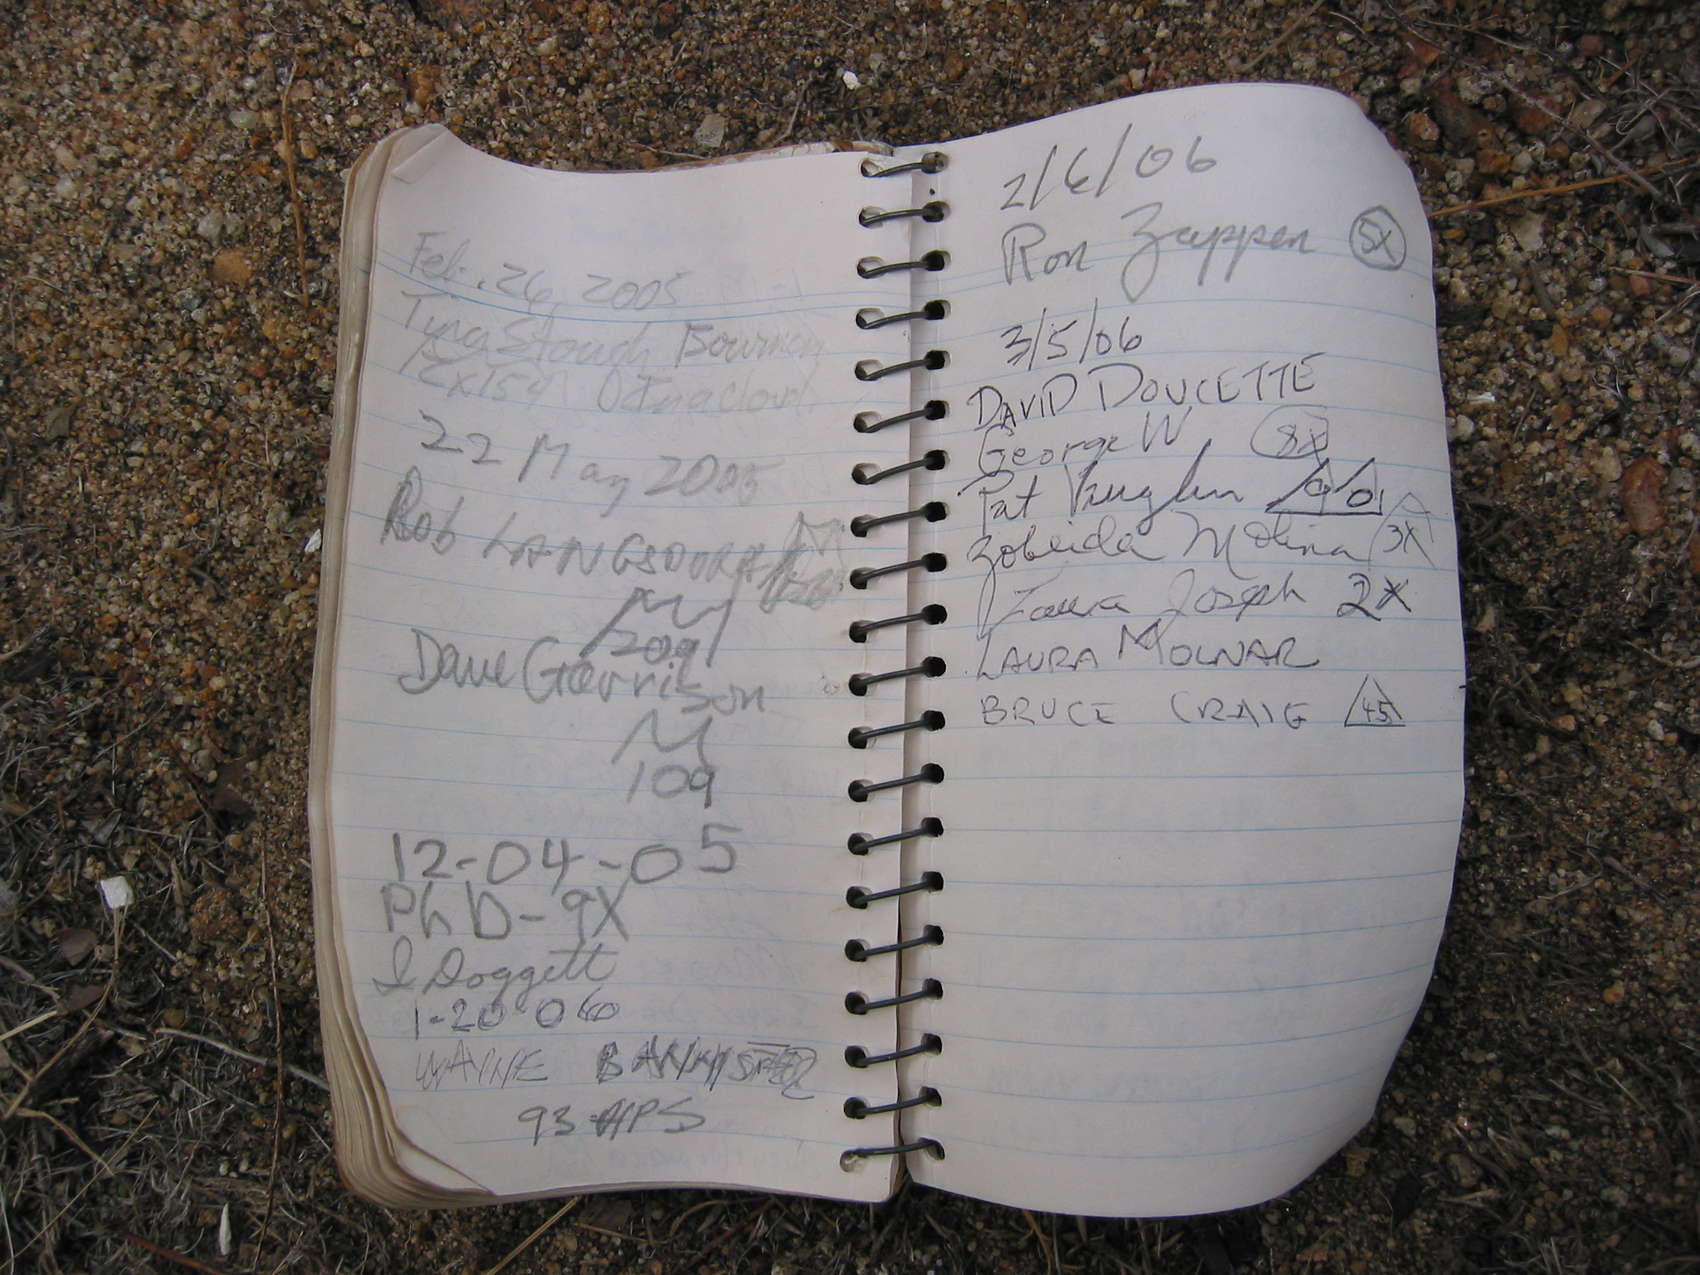 Feb. 26, 2005
Tina Stough Bowman
12x154
22 May 2005
Rob LANGSDORF
209
Dave Garrison
109
12-04-05
PhD-9X
D Doggett
1-20-06
WAYNE
93
2/6/06
Ron Zappen 5X
3/5/06
DAVID DOUCETTE
George W 8X
Pat Vaughn
Zobeida Molina 3X
Laura Joseph 2X
LAURA MOLNAR
BRUCE CRAIG 45